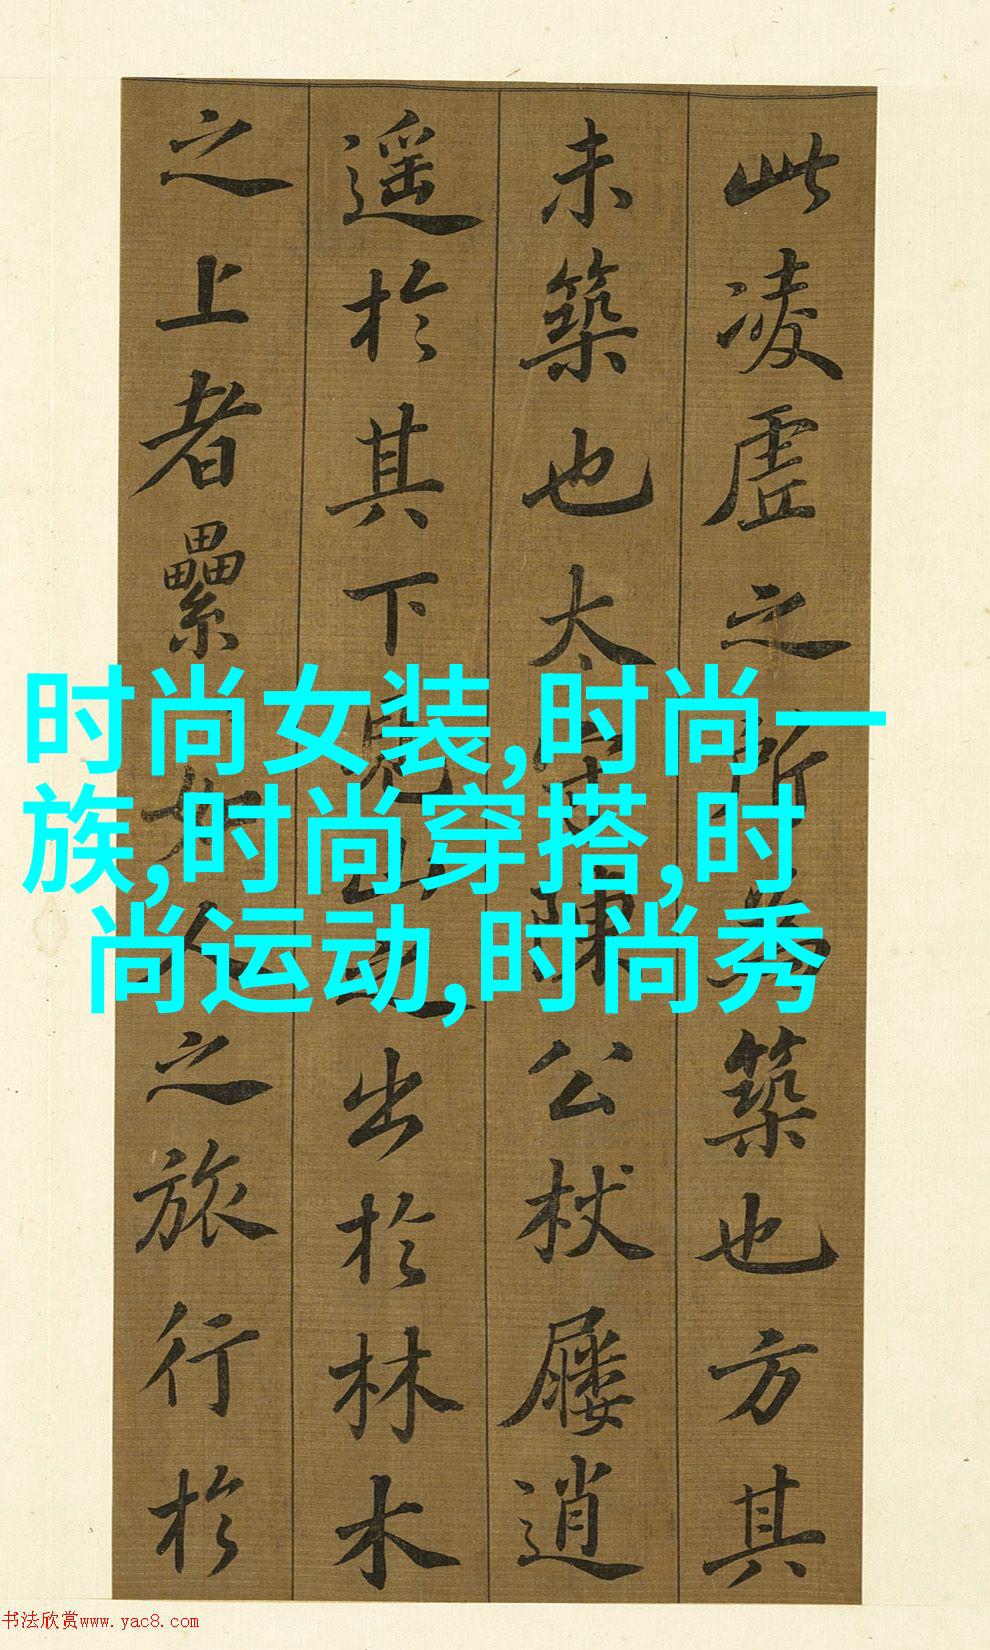 此凌虛之所為築也方其
未築也太守陳公杖屨逍
遥於其下見山之出於林木
之上者纍如人之旅行於
时尚女装,时尚一
族,时尚穿搭,时
尚运动,时尚秀
书法欣赏www.yac8.com